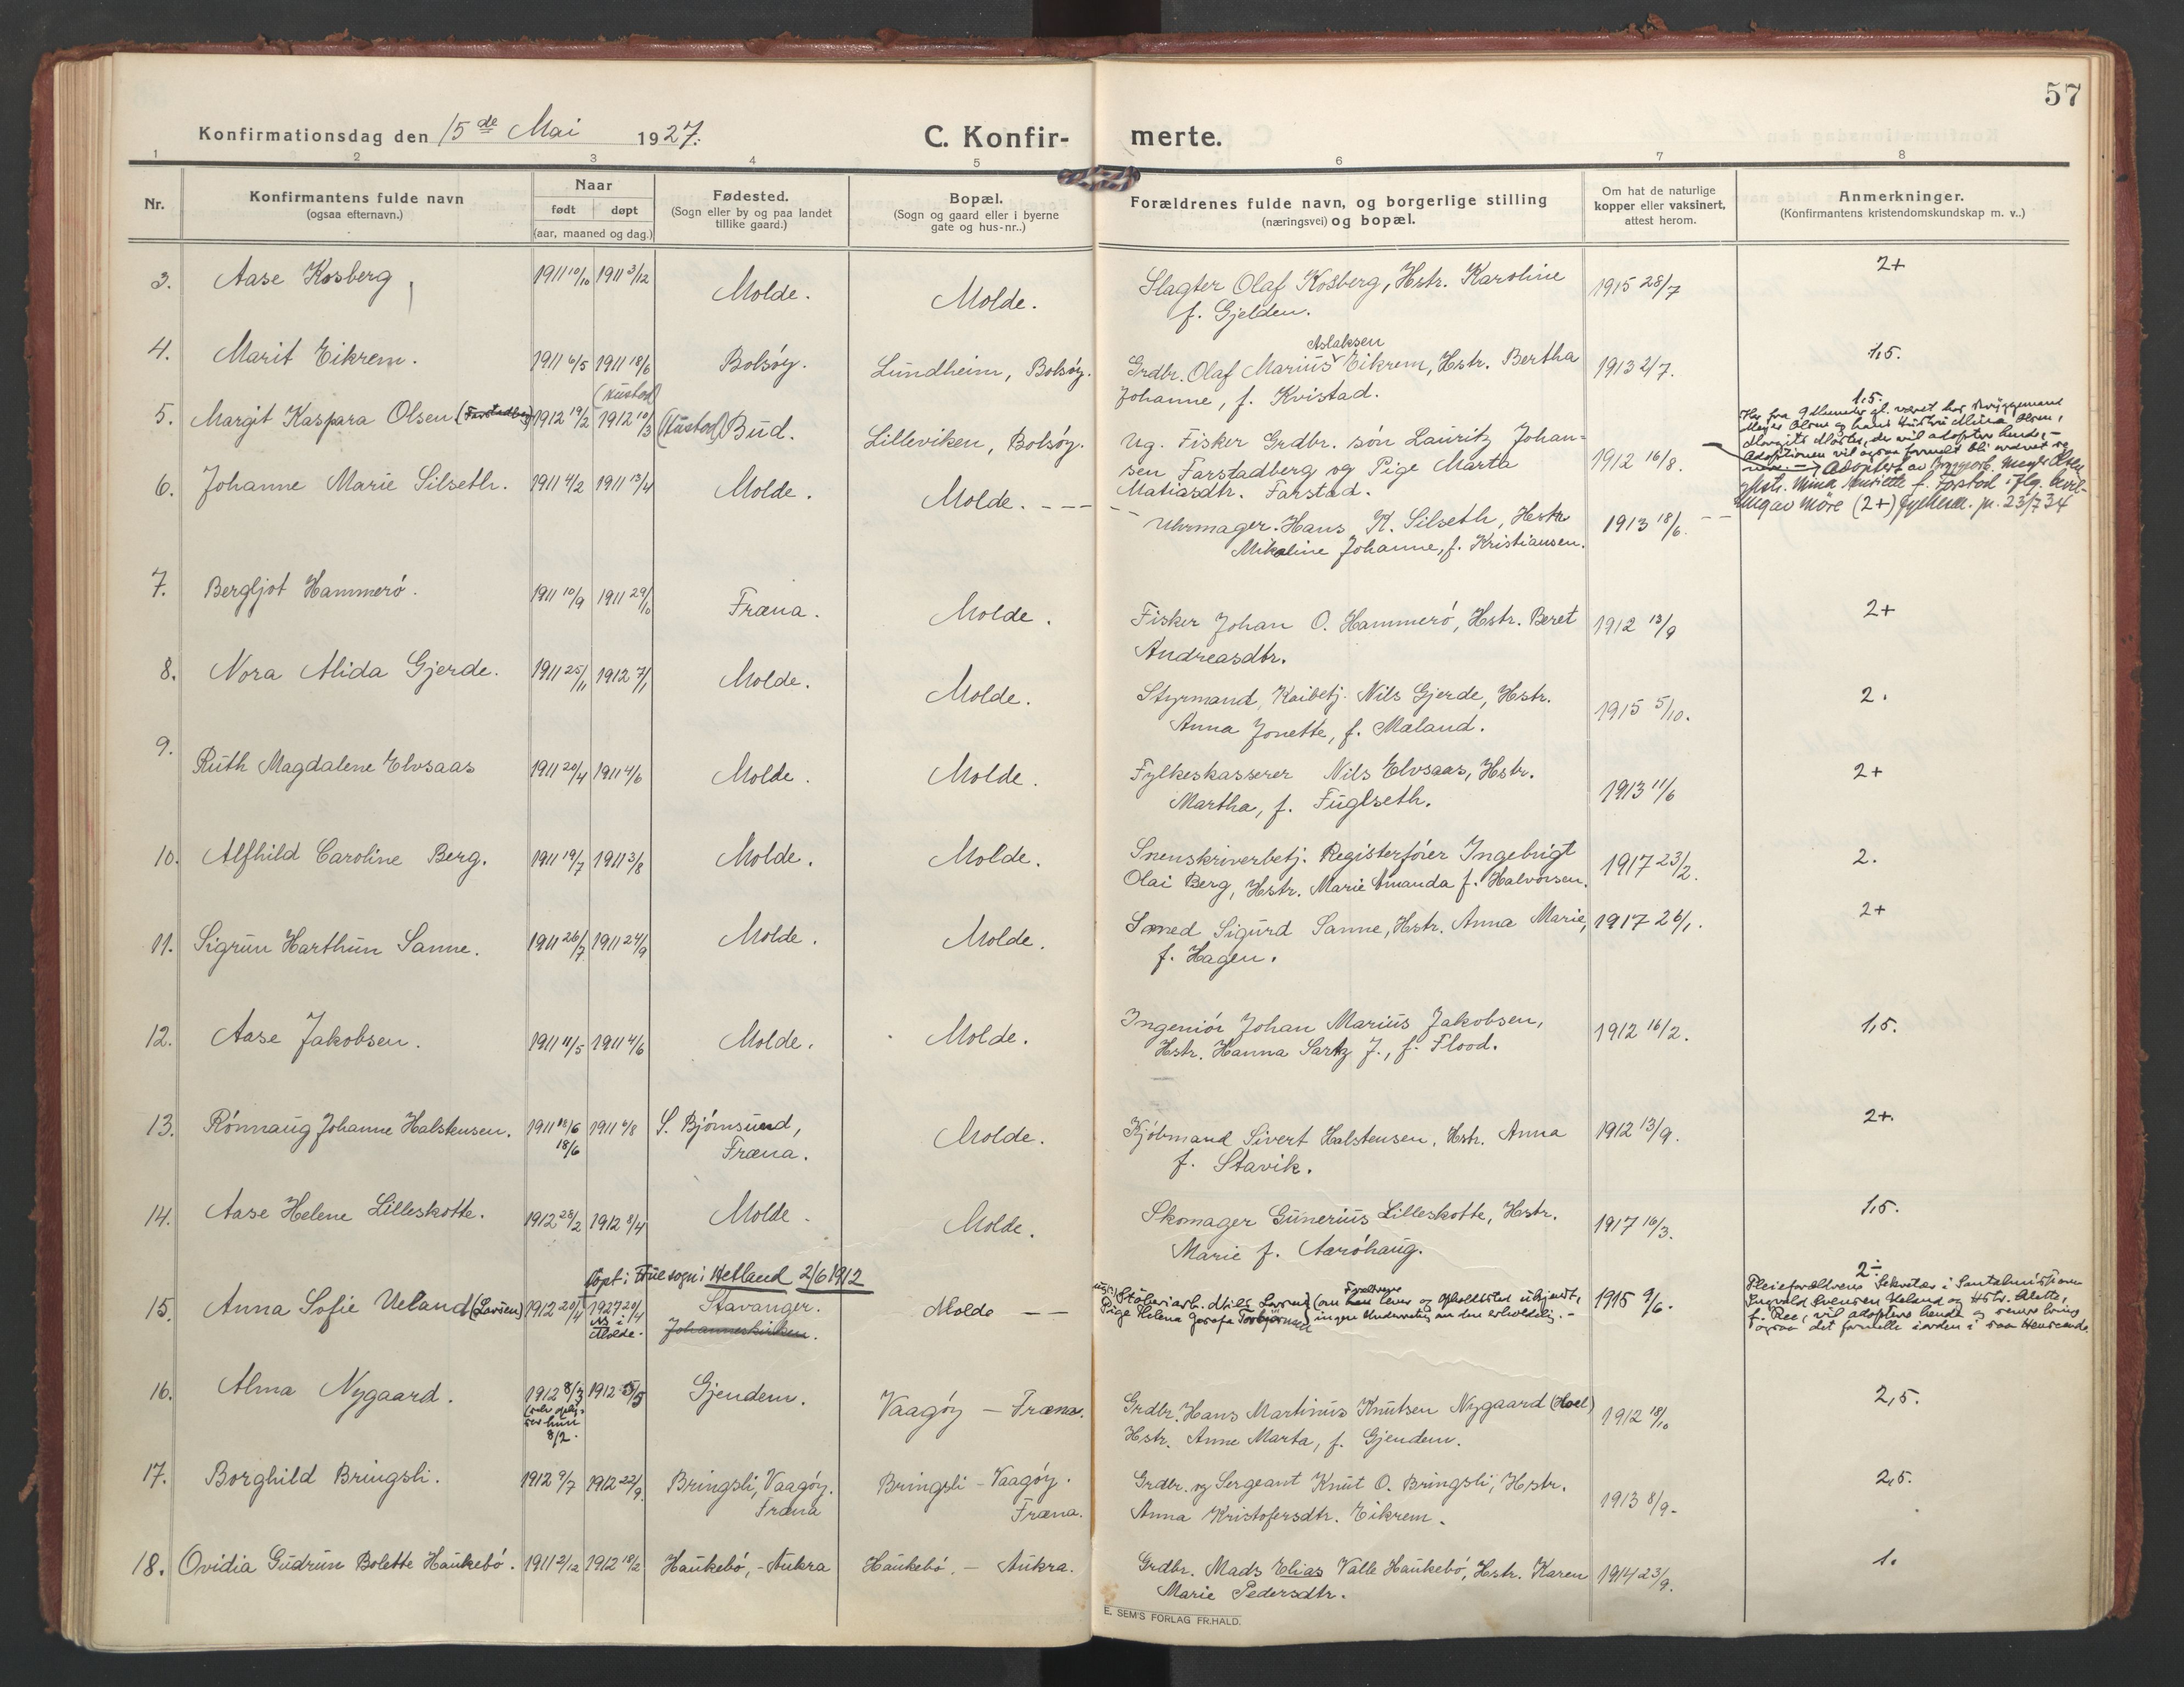 57
Konfirmationsdag den 15de Mai 1927.
C. Konfir- merte.
1 2 3 4 5 6 7 8
Nr.
Konfirmantens fulde navn
(ogsaa efternavn.)
Naar
født døpt
(aar, maaned og dag.)
Fødested.
(Sogn eller by og paa landet
tillike gaard.)
Bopæl.
(Sogn og gaard eller i byerne
gate og hus-nr..)
Forældrenes fulde navn, og borgerlige stilling
(næringsvei) og bopæl.
Om hat de naturlige
kopper eller vaksinert,
attest herom.
Anmerkninger.
(Konfirmantens kristendomskundskap m. v..)
3. Aase Kosberg 1911 10/10 1911 3/12 Molde. Molde. Slagter Olaf Kosberg, Hstr. Karoline 1915 28/7 2+
f. Gjelden.
Aslaksen
4. Marit Eikrem. 1911 6/5 1911 18/6 Bolsöy. Lundheim, Bolsöy. Grdbr. Olaf Marius Eikrem, Hstr. Bertha 1913 2/7. 1,5.
Johanne, f. Kvistad.
(Hustad)
5. Margit Kaspara Olsen (Farstadberg) 1912 19/2 1912 10/3 (Hustad) Bud. Lilleviken, Bolsöy. Ug. Fisker Grdbr. sön Lauritz Johan- 1912 16/8. 1,5.
sen Farstadberg og Pige Marta
Matiasdtr. Farstad.
Har fra 9 Maaneder gl. været hos Bryggemand
Meyer Olsen og hans Hustru Mina Olsen,
Margits Moster, der vil adoptere hende, -
Adoptionen vil ogsaa formelt bli ordnet
Adoptert av Bryggearb. Meyer Olsen
og Hstr. Mina Henriette f. Farstad i flg. bevil-
ling av Möre fylkesm. pr. 23/7 34
6. Johanne Marie Silseth. 1911 4/2 1911 13/4 Molde. Molde. - - - Uhrmager. Hans K. Silseth, Hstr. 1913 18/6. (2+)
Mikaline Johanne, f. Kristiansen.
7. Bergljot Hammerö. 1911 10/9 1911 29/10 Fræna. Molde. Fisker Johan O. Hammerö, Hstr. Beret 1912 13/9 2+
Andreasdtr.
8. Nora Alida Gjerde. 1911 25/11 1912 7/1 Molde. Molde. Styrmand, Kaibetj. Nils Gjerde, Hstr. 1915 5/10. 2.
Anna Jonette, f. Maland.
9. Ruth Magdalene Elvsaas 1911 20/4 1911 4/6 Molde. Molde. Fylkeskasserer Nils Elvsaas, Hstr. 1913 11/6 2+
Martha, f. Fuglseth.
10. Alfhild Caroline Berg. 1911 19/7 1911 3/8 Molde. Molde. Snenskriverbetj. Registerförer Ingebrigt 1917 23/2. 2.
Olai Berg, Hstr. Marie Amanda f. Halvorsen.
11. Sigrun Harthun Sanne. 1911 26/7 1911 24/9 Molde. Molde. Smed Sigurd Sanne, Hstr. Anna Marie, 1917 26/1. 2+
f. Hagen.
12. Aase Jakobsen. 1911 11/5 1911 4/6 Molde. Molde. Ingeniör Johan Marius Jakobsen, 1912 16/2. 1,5.
Hstr. Hanna Sartz J., f. Flood.
13. Rönnaug Johanne Halstensen. 1911 18/6 1911 6/8 S. Björnsund, Molde. Kjöbmand Sivert Halstensen, Hstr. Anna 1912 13/9. 2+.
18/6 Fræna. f. Stavik.
14. Aase Helene Lilleskotte. 1912 28/2 1912 8/4 Molde. Molde. Skomager Gunerius Lilleskotte, Hstr. 1917 16/3. 1,5.
Marie f. Aaröhaug.
döpt i Fruesogn i Hetland 2/6 1912
15. Anna Sofie Ueland (Larsen) 1912 20/4 1927 20/4 Stavanger. Molde - - Stöberiarb. Nils Larsen (om Forældrene lever og Opholdssted ukjendt, 1915 9/6. 2-
ns i Molde. Johanneskirken. Pige Helena Josefa Torbjörnsen ingen Underretning om den erholdelig. -
Pleieforældrene Sekretær i Santalmissionen
Ingvald Svensen Ueland og Hstr. Alette,
f. Ree, vil adoptere hende og senere bring
ogsaa det formelle iorden i saa Henseende.
16. Alma Nygaard. 1912 8/3 1912 5/5 Gjendem. Vaagöy - Fræna. Grdbr. Hans Martinus Knutsen Nygaard (Hoel) 1912 18/10 2,5.
(selv oplyser hun 8/2. Hstr. Anne Marta, f. Gjendem.
17. Borghild Bringsli. 1912 9/7 1912 22/9. Bringsli, Vaagöy. Bringsli - Vaagöy. Grdbr. og Sergeant Knut O. Bringsli, Hstr. 1913 8/9. 2,5.
Fræna Fræna. Anna Kristofersdtr. Eikrem.
18. Ovidia Gudrun Bolette Haukebö. 1911 2/12 1912 18/2 Haukebö, - Aukra Haukebö, - Aukra. Grdbr. Mads Elias Valle Haukebö, Hstr. Karen 1914 23/9. 1.
Marie Pedersdtr.
E. SEM'S FORLAG FR.HALD.